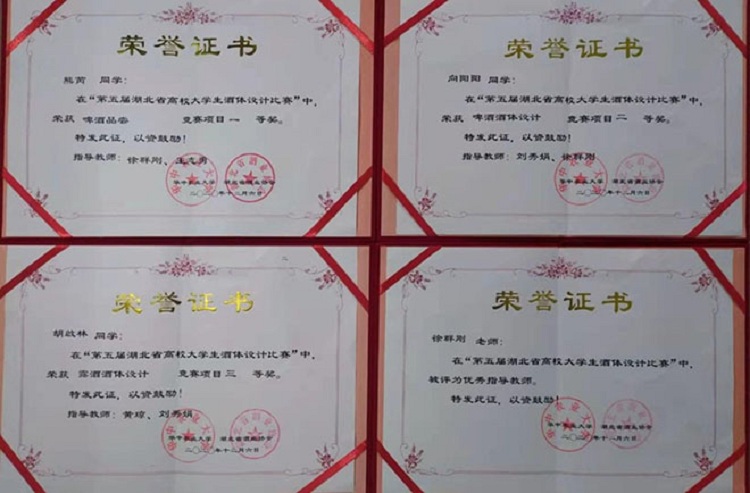 荣誉证书
熊芮 同学：
在“第五届湖北省高校大学生酒体设计比赛”中，
荣获 啤酒品鉴 竞赛项目一 等奖。
特发此证，以资鼓励！
指导教师：徐群刚、汪志勇
华中农业大学 湖北省酒业协会
二〇二〇年十二月六日
荣誉证书
向阳阳 同学：
在“第五届湖北省高校大学生酒体设计比赛”中，
荣获 啤酒酒体设计 竞赛项目二 等奖。
特发此证，以资鼓励！
指导教师：刘秀娟、徐群刚
华中农业大学 湖北省酒业协会
二〇二〇年十二月六日
荣誉证书
胡 林 同学：
在“第五届湖北省高校大学生酒体设计比赛”中，
荣获 露酒酒体设计 竞赛项目三 等奖。
特发此证，以资鼓励！
指导教师：黄琼、刘秀娟
华中农业大学 湖北省酒业协会
二〇二〇年十二月六日
荣誉证书
徐群刚 老师：
在“第五届湖北省高校大学生酒体设计比赛”中，
被评为优秀指导教师。
特发此证，以资鼓励！
华中农业大学 湖北省酒业协会
二〇二〇年十二月六日